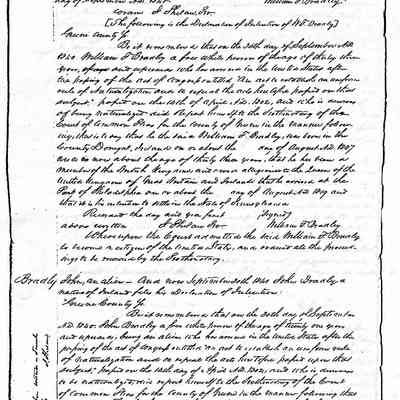 day of September AD 1840. William F. Bradly.
coram J. Phelan, Pro.
[The following is the Declaration of Intention of W. F. Bradly]
Greene County Ss
Be it remembered that on the 30th day, of September AD
1840 William F. Bradly a free white person of the age of thirty three
years, appears and who has arrived in the United States after
the passing of the act of Congress entitled An act to establish an uniform
rule of Naturalization and to repeal the acts heretofore passed on that
subject, passed on the 14th of April AD. 1802, and who is desirous
of being naturalized did report himself to the Prothonotary of the
Court of Common Pleas for the County of Greene in the manner follow
ing, that is to say that he the said William F. Bradly, was born in the
County Donegal, Ireland on or about the day of August AD 1807
and is now about the age of thirty three years, that he has been a
of the British King and owes allegiance to the crown of the
United Kingdom of Great Britain and Ireland that he arrived at the
Port of Philadelphia on or about the day of August AD 1819 and
that it is his intention to settle in the State of Pennsylvania
the day and year first [Signed]
above written J. Phelan Pro William F. Bradly
Whereupon the Court admitted the said William F. Bradly
to become a citizen of the United States, and ordered all the proceed-
ings to be recorded by the Prothonotary.
Bradly John, an alien - And now September 30th 1840 John Bradly a
native of Ireland files his Declaration of Intention:
Greene County Ss
Be it remembered that on the 30th day of September
AD 1840. John Bradly a free white person of the age of twenty one years
and upwards, being an alien who has arrived in the United States after the
passing of the act of Congress entitled an act to establish an uniform rule
of naturalization and to repeal the acts heretofore passed upon that
subject passed on the 14th day of April AD. 1802, and who is desirous
to be naturalized, did report himself to the Prothonotary of the Court
of Common Pleas for the County of Greene in the manner following that